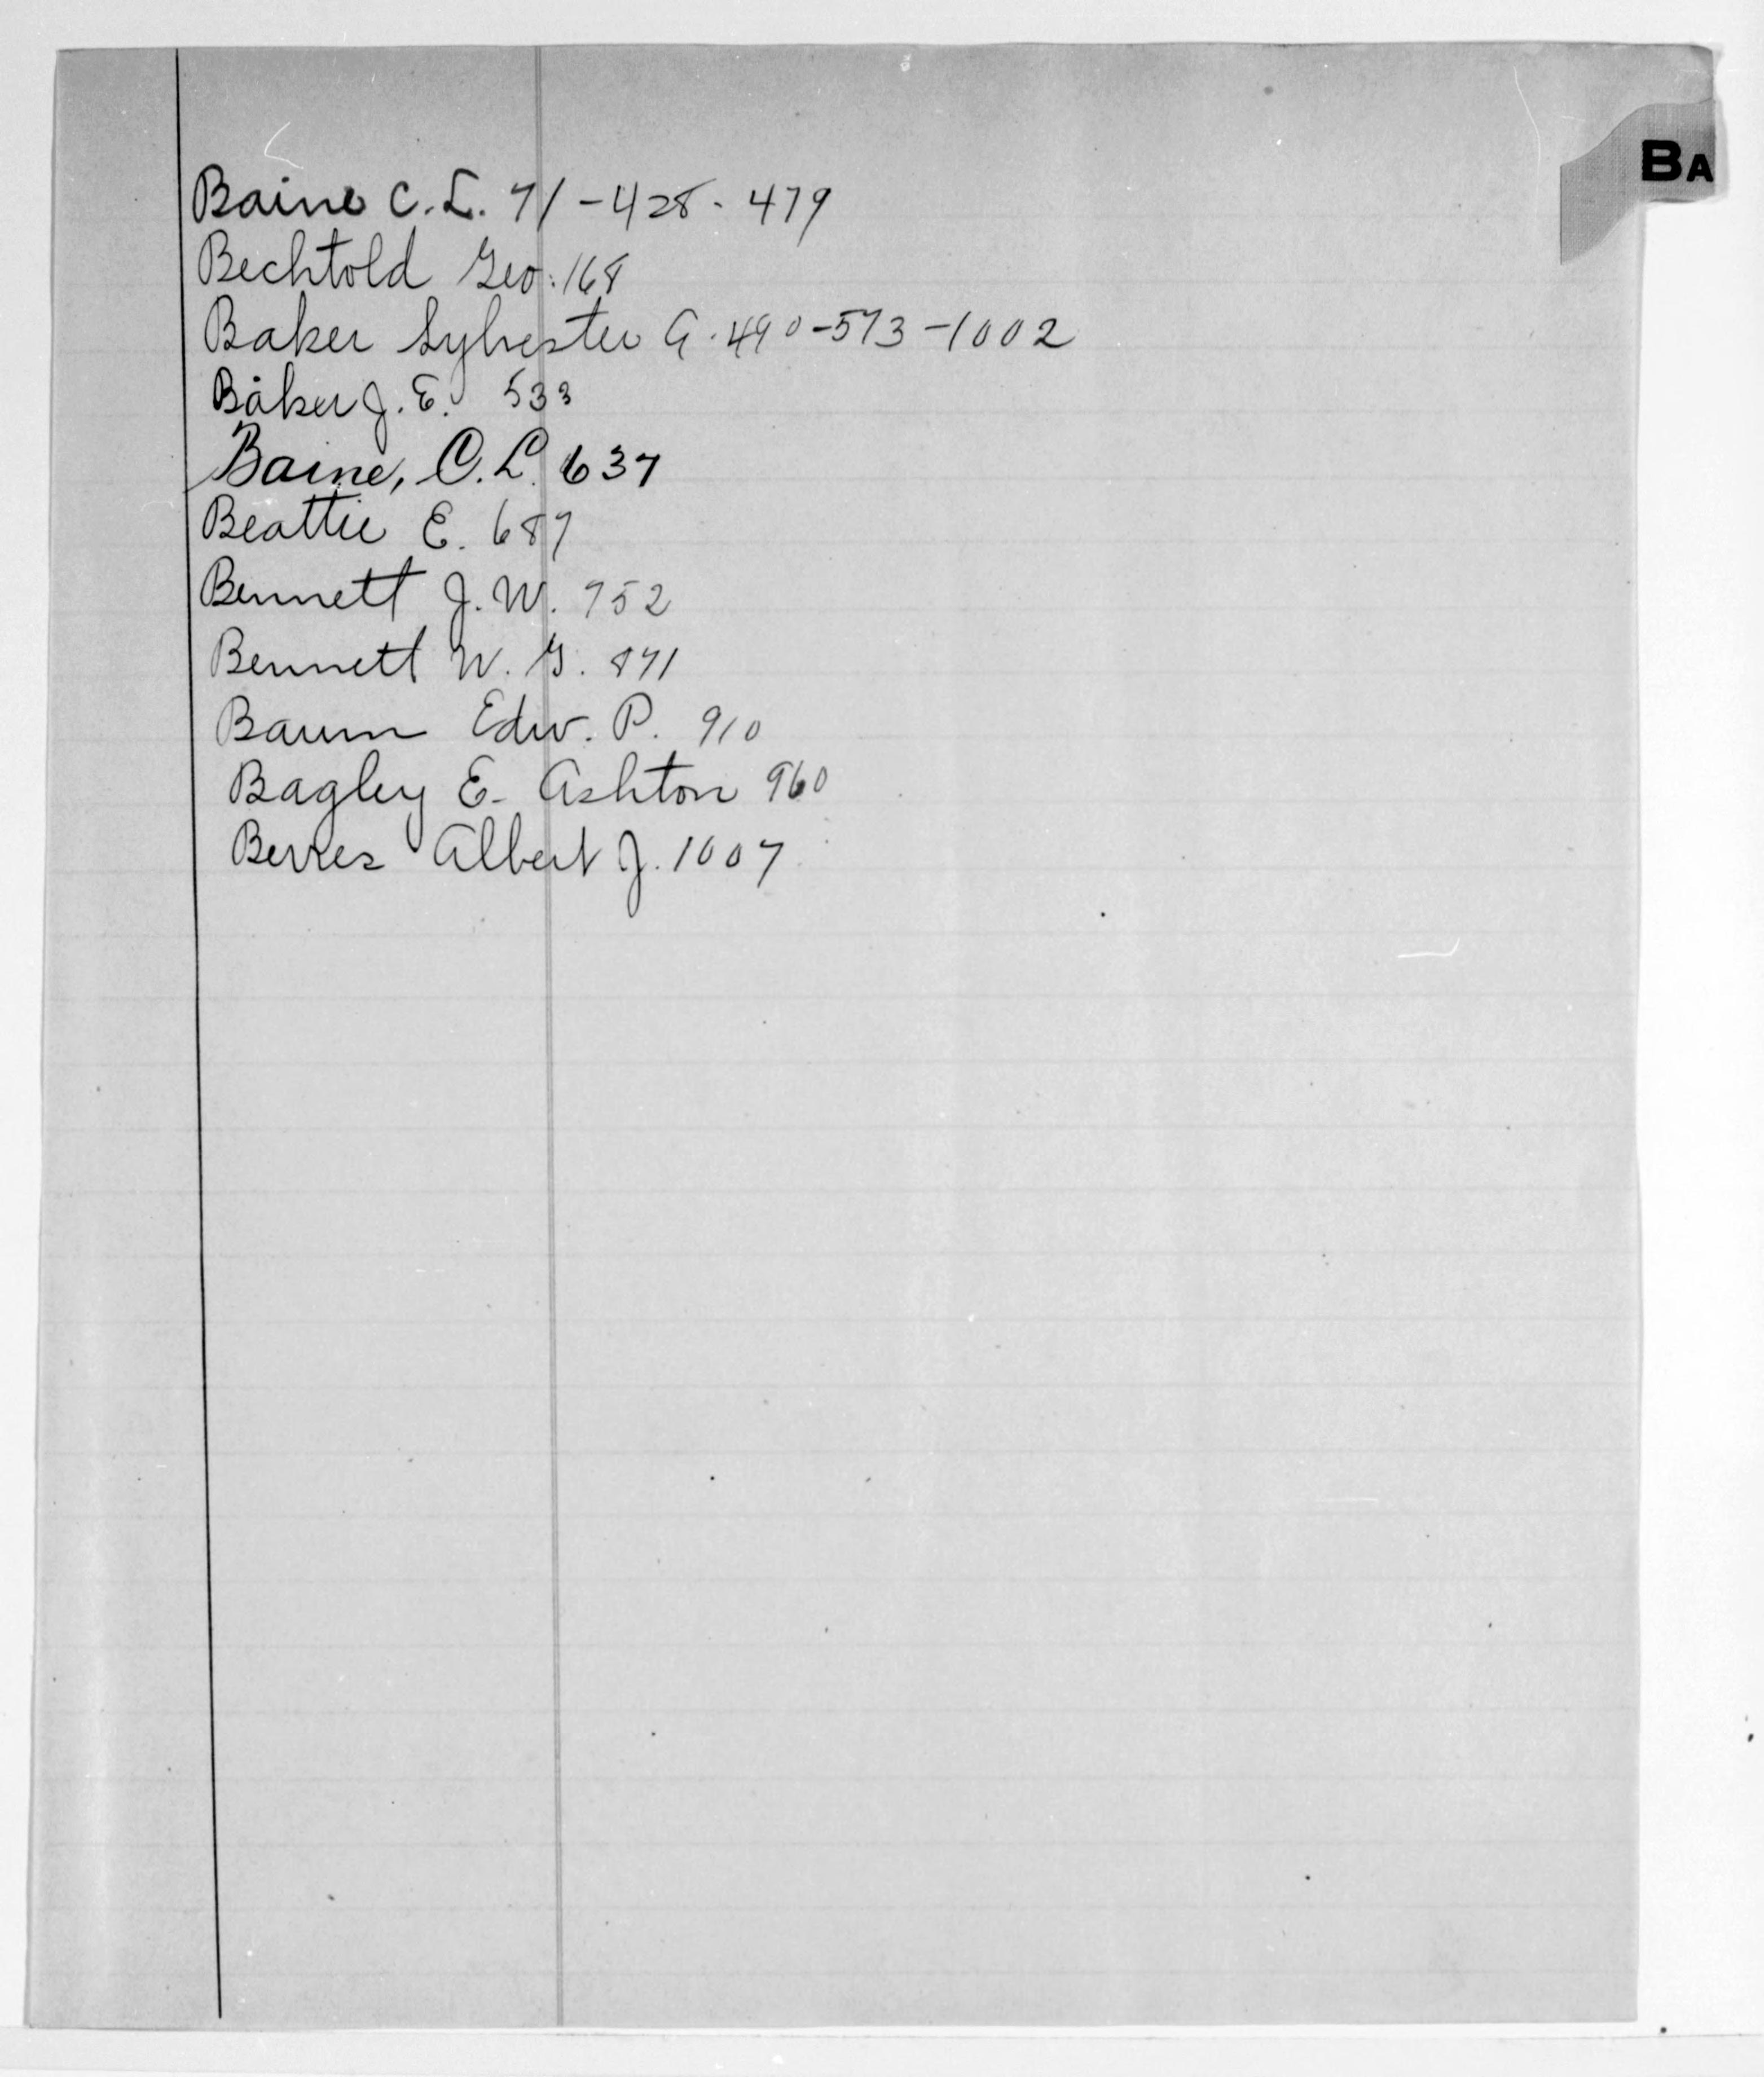 BA
Baine C. L. 71-428-479
Bechtold Geo. 168
Baker Sylvester A. 490-573-1002
Baker J. E. 533
Baine, C. L. 637
Beattie E. 687
Bennett J. W. 752
Bennett W. G. 871
Baum Edw. P. 910
Bagley E. Ashton 960
Berres Albert J. 1007